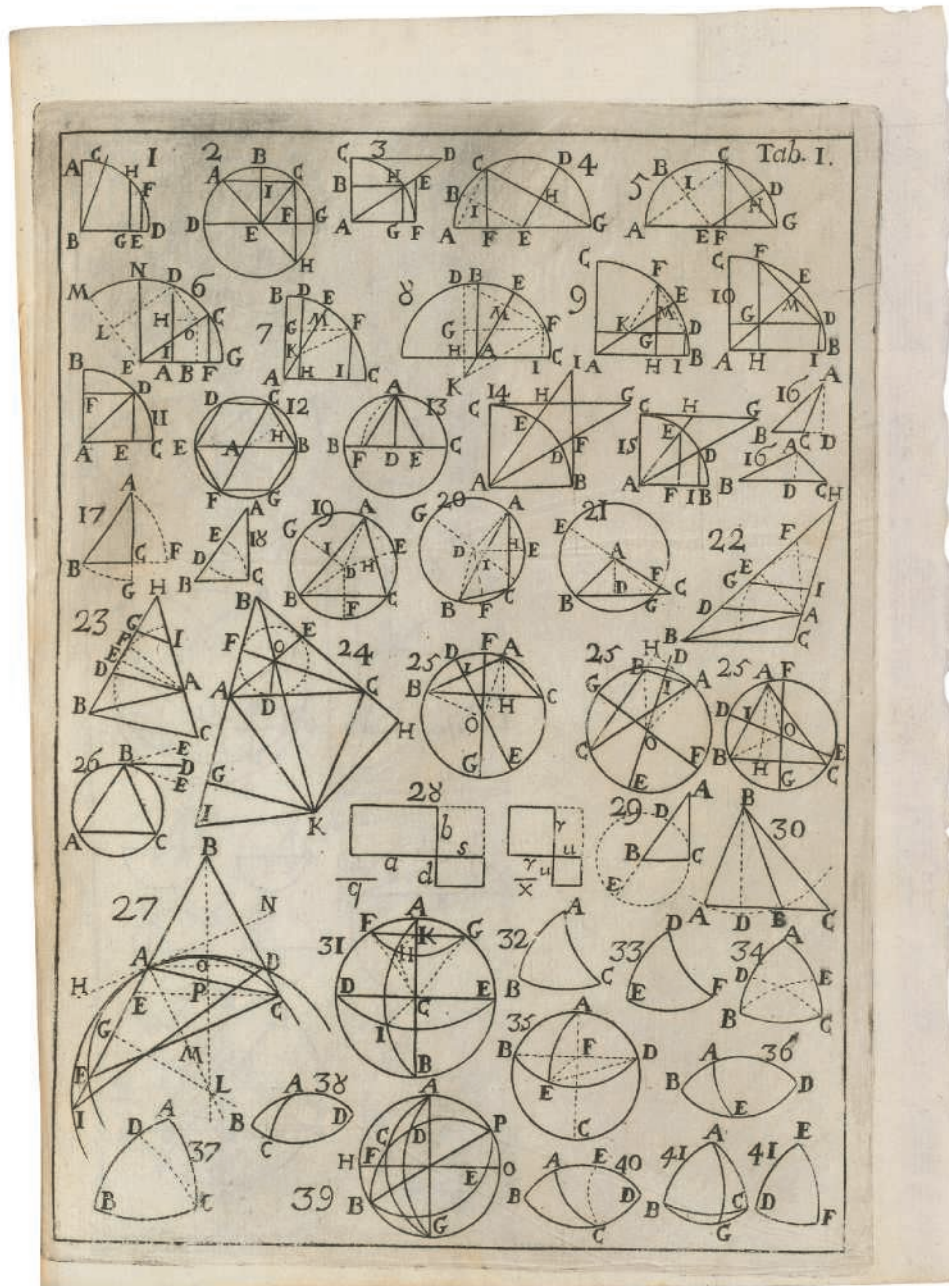 Tab. 1.
1
A C H F B G E D
2
B A C I D F G E H
3
C D B H E A G F
4
C D B H I A F E G
5
B C I D H A E F G
6
N D M H C L O E I A B F G
7
B D E G M F K A H I C
8
D B E M G F H A C I K
9
C F E K M D G A H I B
10
C F E M G D A H I B
11
B D F A E C
12
D C H E A B F G
13
A B F D E C
14
I H G C E F D A B
15
C H G E D A F I B
16
A B C D
16
A B D C
17
A B C F G
18
A E D B C
19
G A I E D H B F C
20
G A D H E I B F C
21
E A F B D G C
22
H F E G I D A B C
23
H G F I E D A B C
24
B F E O A D C H G I K
25
D F A B C H O G E
25
H D B A G I C O F E
25
A F D I O B H G C E
26
B E D E A C
27
B N A O D H E P C G M F L I
28
b s a d q
r u r u x
29
A D B C E
30
B A D B C
31
A F K G H D C E I B
32
A B C
33
D E F
34
A D E B C
35
A B F D E C
36
A B D E
37
A D B C
38
A B D C
39
A C D P H F O E B G
40
A E B D C
41
A B C G
41
E D F